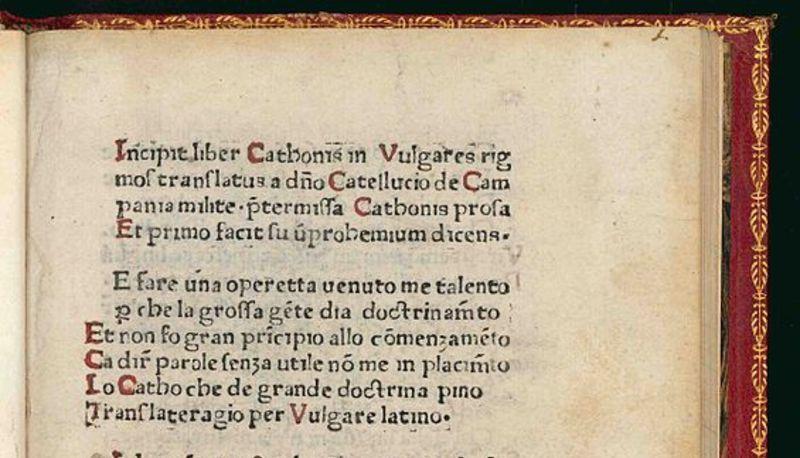 Incipit liber Cathonis̄ in Vulgares̄ rig
moſ tranſlatus a dn̄o Catellucio de Cam
pania milite · p̄termiſſa Cathonis proſa
Et primo facit ſu ūprohemium dicens·
E fare un̄a operetta uenuto me talento
ꝑ che la groſſa gēte dia doctrinam̄to
Et non fo gran prīcipio allo cōmenzamēto
Ca dir̄ parole ſenza utile nō me in placim̄to
Lo Catho che de grande doctrina pino
Tranſlateragio per Vulgare latino·